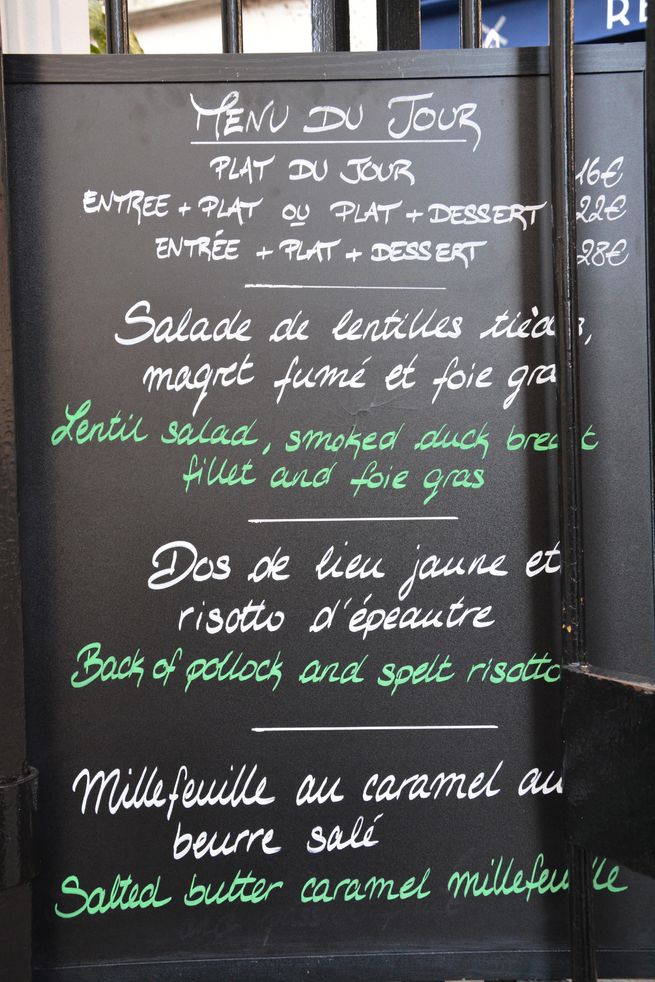 RE
MENU DU JOUR
PLAT DU JOUR 16€
ENTREE + PLAT OU PLAT + DESSERT 22€
ENTRÉE + PLAT + DESSERT 28€
Salade de lentilles tièdes,
magret fumé et foie gras
Lentil salad, smoked duck breast
fillet and foie gras
Dos de lieu jaune et
risotto d'épeautre
Back of pollock and spelt risotto
Millefeuille au caramel au
beurre salé
Salted butter caramel millefeuille